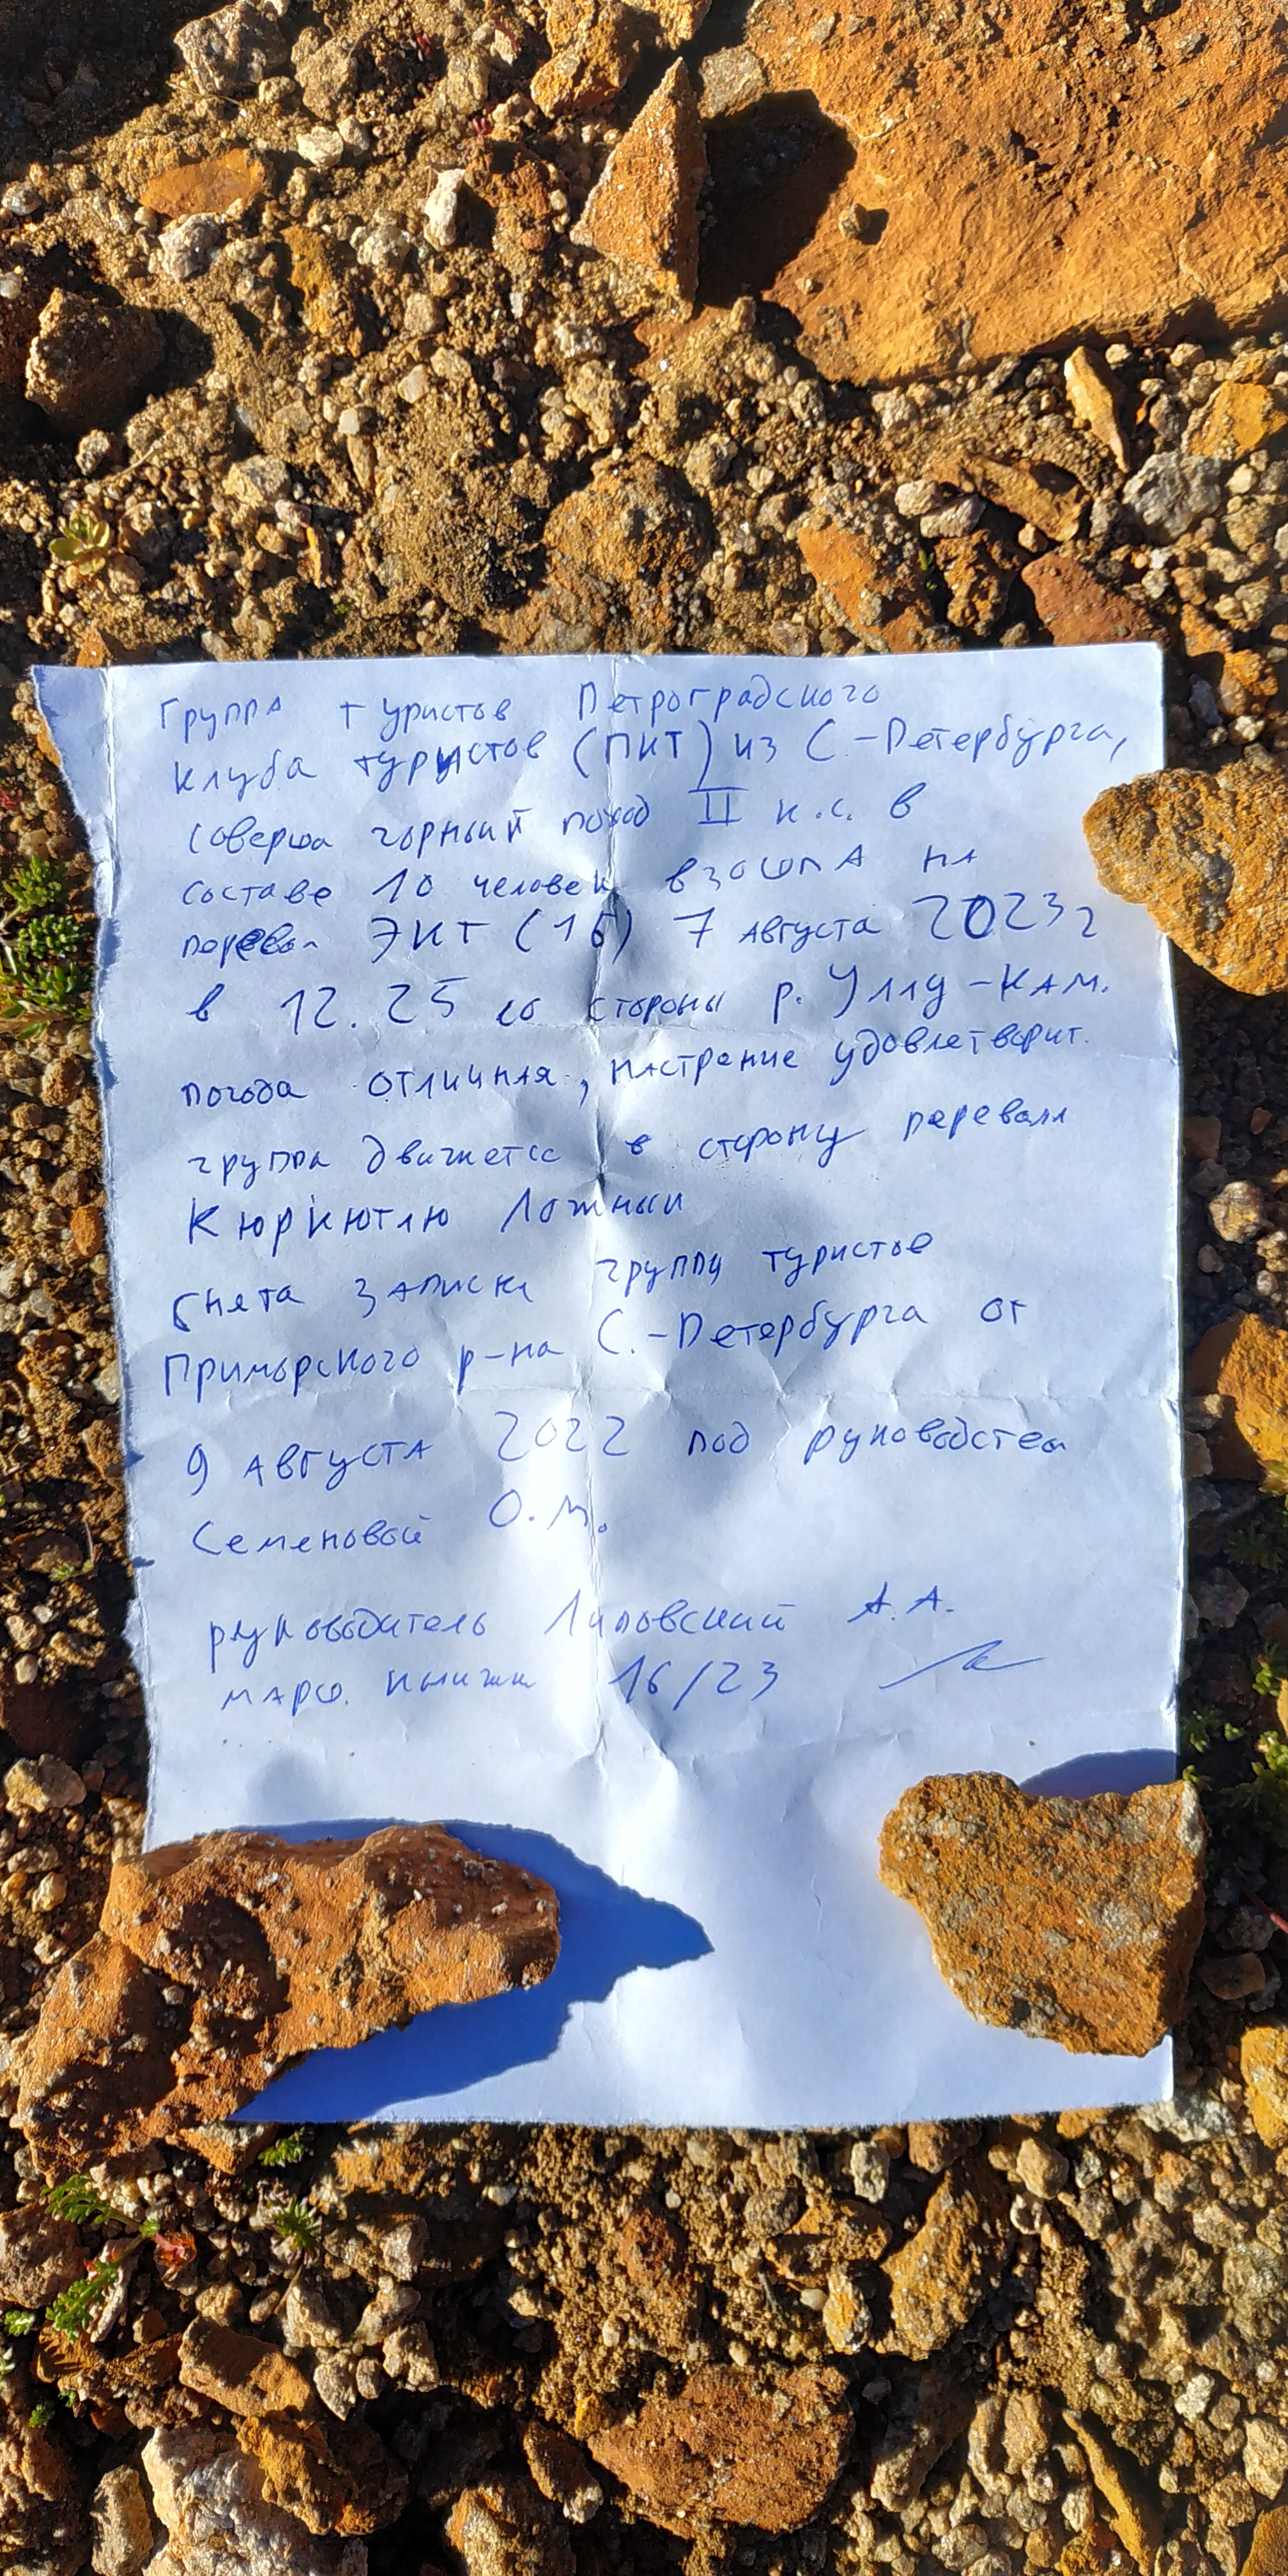 Группа туристов Петроградского
клуба туристов (ПКТ) из С.-Петербурга,
соверша горный поход II к.с. в
составе 10 человек взошла на
перевал ЭКТ (1б) 7 августа 2023г
в 12.25 со стороны р. Уллу-Кам.
погода отличная, настрение удовлетворит.
группа движется в сторону перевала
Кюркютлю Ложный
Снята записка группы туристов
Приморского р-на С.-Петербурга от
9 августа 2022 под руководством
Семеновой О.М.
руководитель Липовский А.А.
марш. книжки 16/23